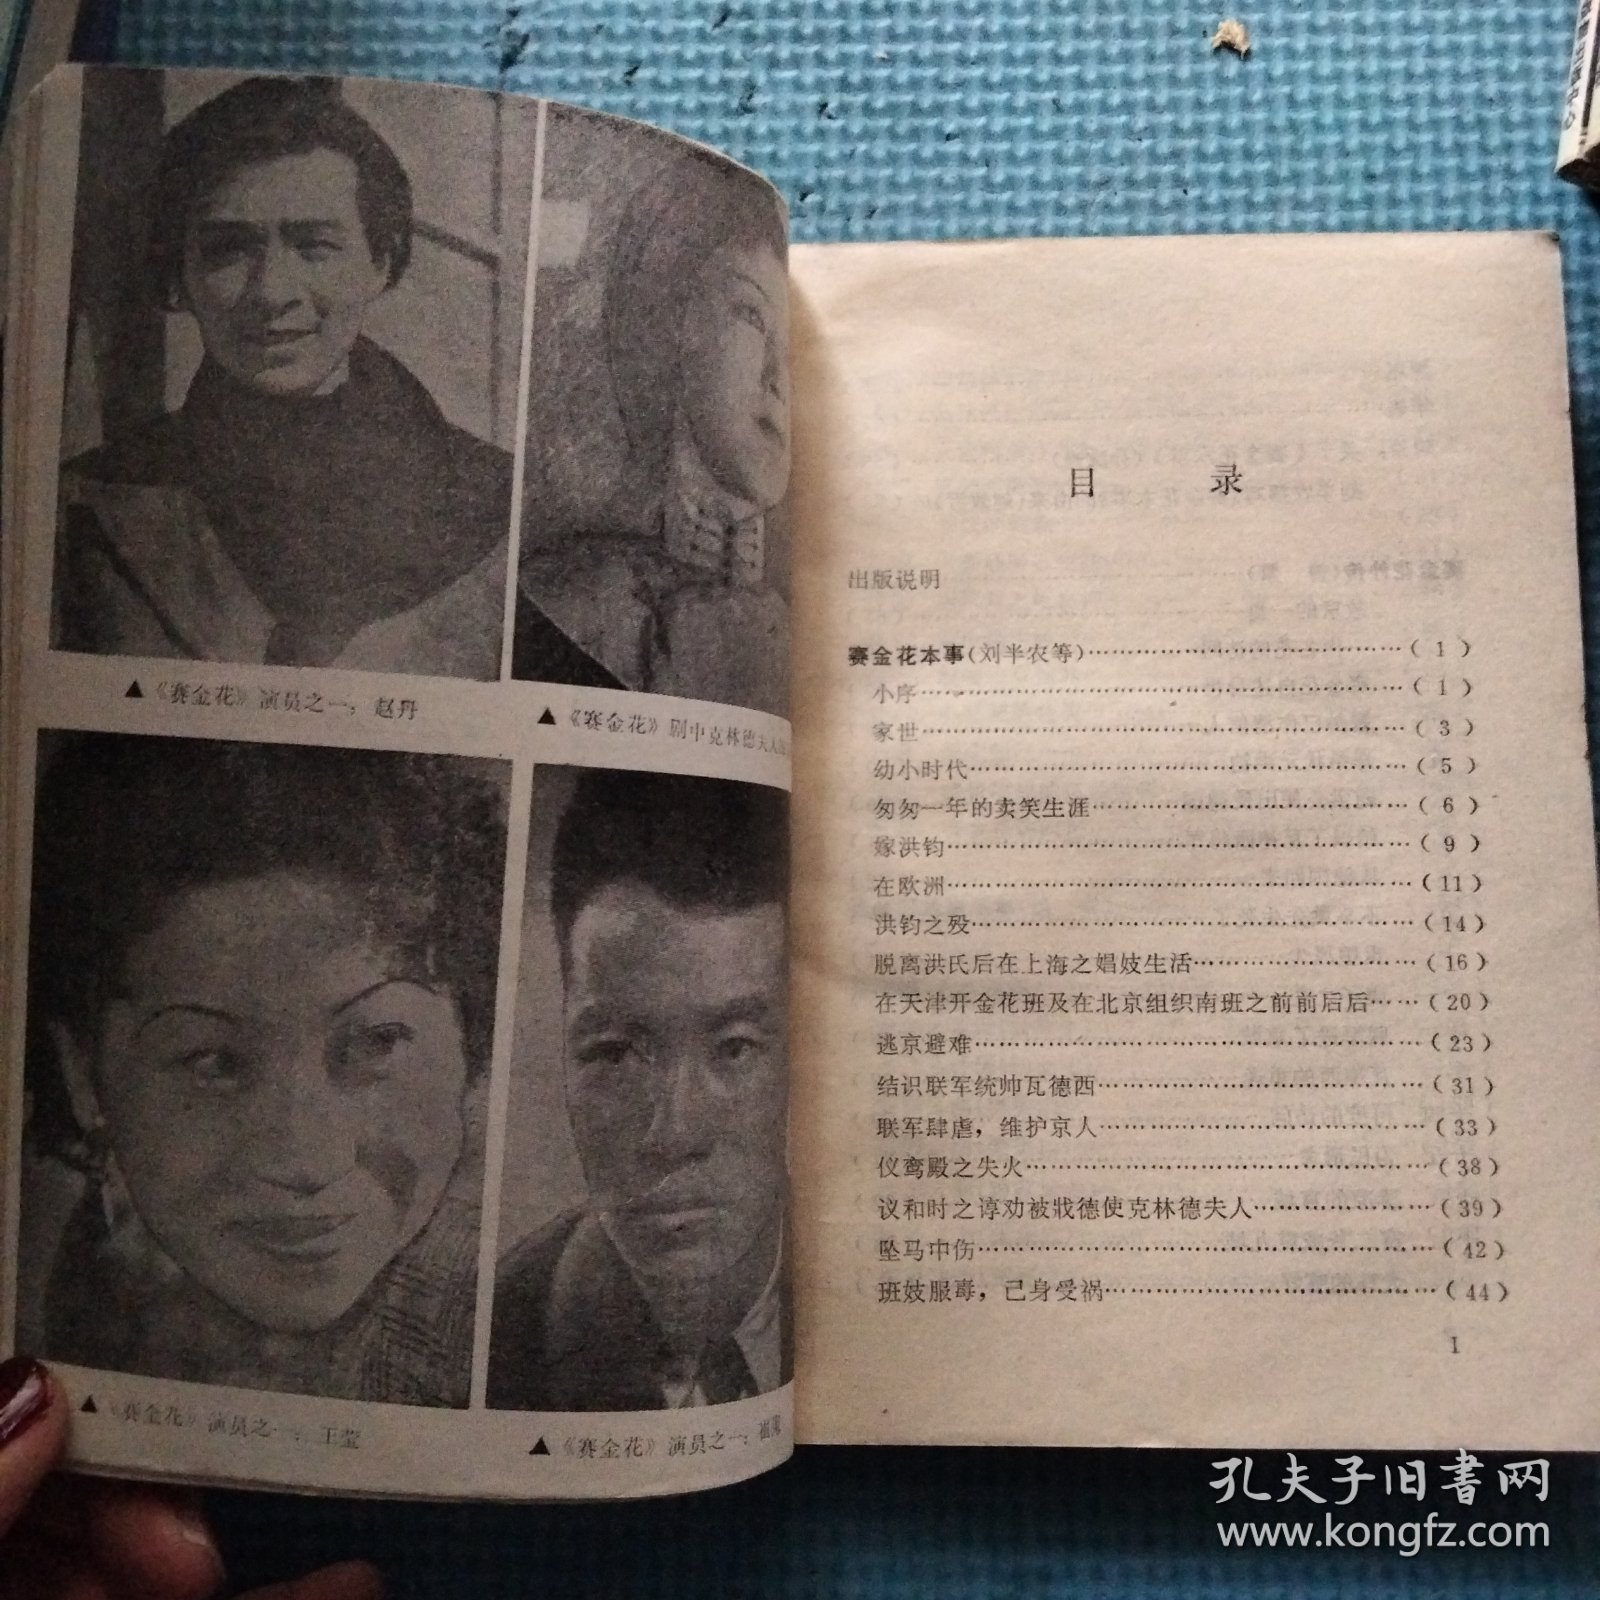 ▲《赛金花》演员之一：赵丹
▲《赛金花》剧中克林德夫人
▲《赛金花》演员之一：王莹
▲《赛金花》演员之一：崔
目 录
出版说明
赛金花本事(刘半农等)……………………………(1)
小序……………………………(1)
家世……………………………(3)
幼小时代……………………………(5)
匆匆一年的卖笑生涯……………………………(6)
嫁洪钧……………………………(9)
在欧洲……………………………(11)
洪钧之殁……………………………(14)
脱离洪氏后在上海之娼妓生活……………………(16)
在天津开金花班及在北京组织南班之前前后后……(20)
逃京避难……………………………(23)
结识联军统帅瓦德西……………………………(31)
联军肆虐，维护京人……………………………(33)
仪鸾殿之失火……………………………(38)
议和时之谆劝被戕德使克林德夫人………………(39)
坠马中伤……………………………(42)
班妓服毒，己身受祸……………………………(44)
1
孔夫子旧書网
www.kongfz.com